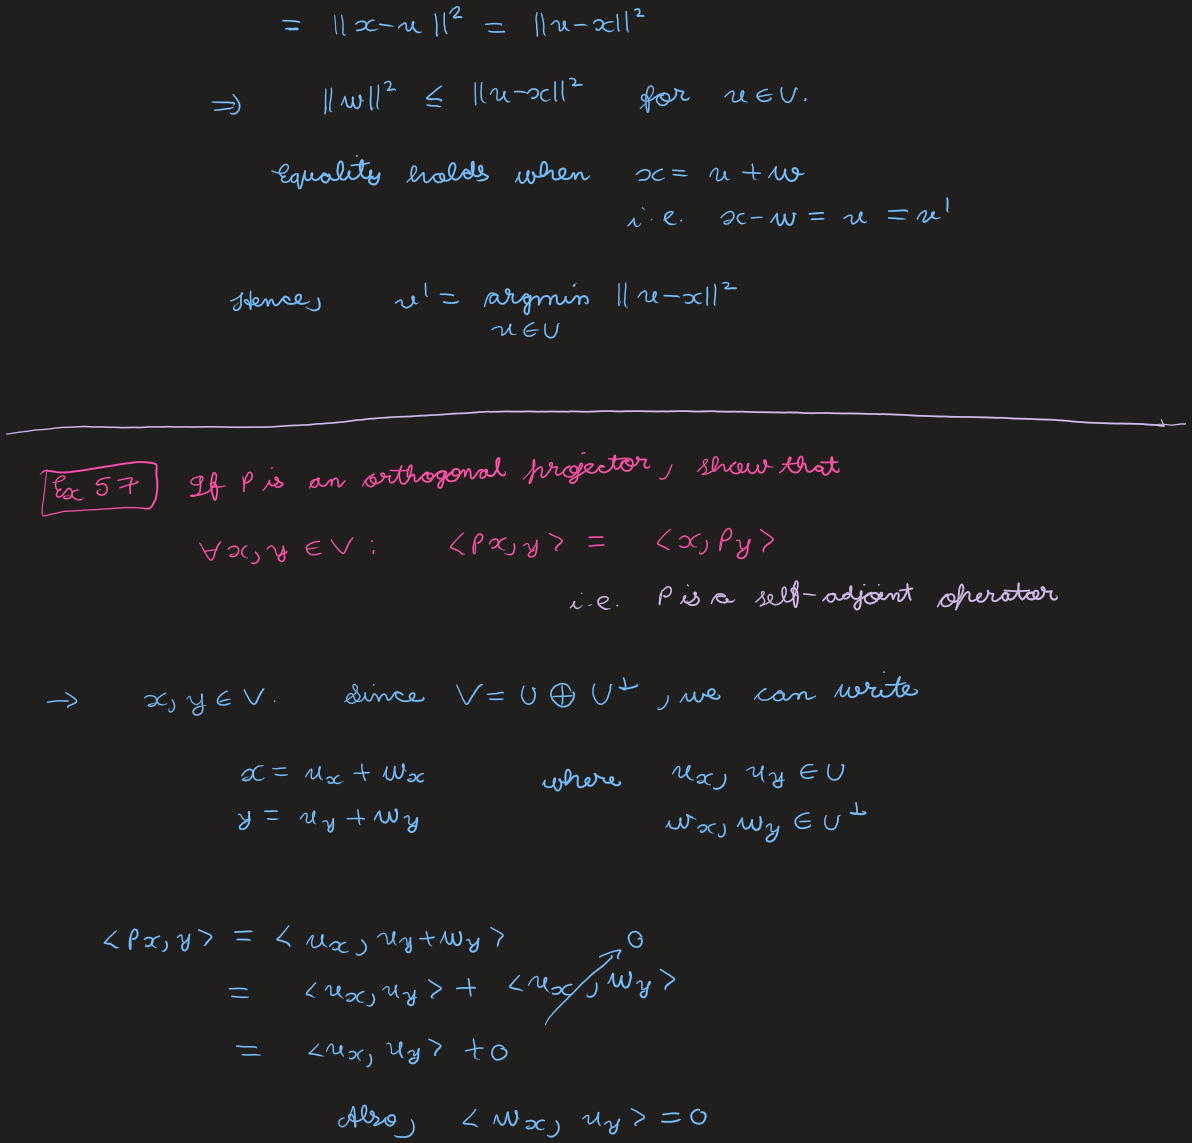 = ||x-u||² = ||u-x||²
⇒ ||w||² ≤ ||u-x||² for u ∈ U.
Equality holds when x = u + w
i.e. x-w = u = u'
Hence, u' = argmin ||u-x||²
u ∈ U
Ex 57 If P is an orthogonal projector, show that
∀x, y ∈ V : <Px, y> = <x, Py>
i.e. P is a self-adjoint operator
→ x, y ∈ V. Since V = U ⊕ U⊥, we can write
x = u_x + w_x where u_x, u_y ∈ U
y = u_y + w_y w_x, w_y ∈ U⊥
<Px, y> = <u_x, u_y + w_y>
= <u_x, u_y> + <u_x, w_y> 0
= <u_x, u_y> + 0
Also, <w_x, u_y> = 0